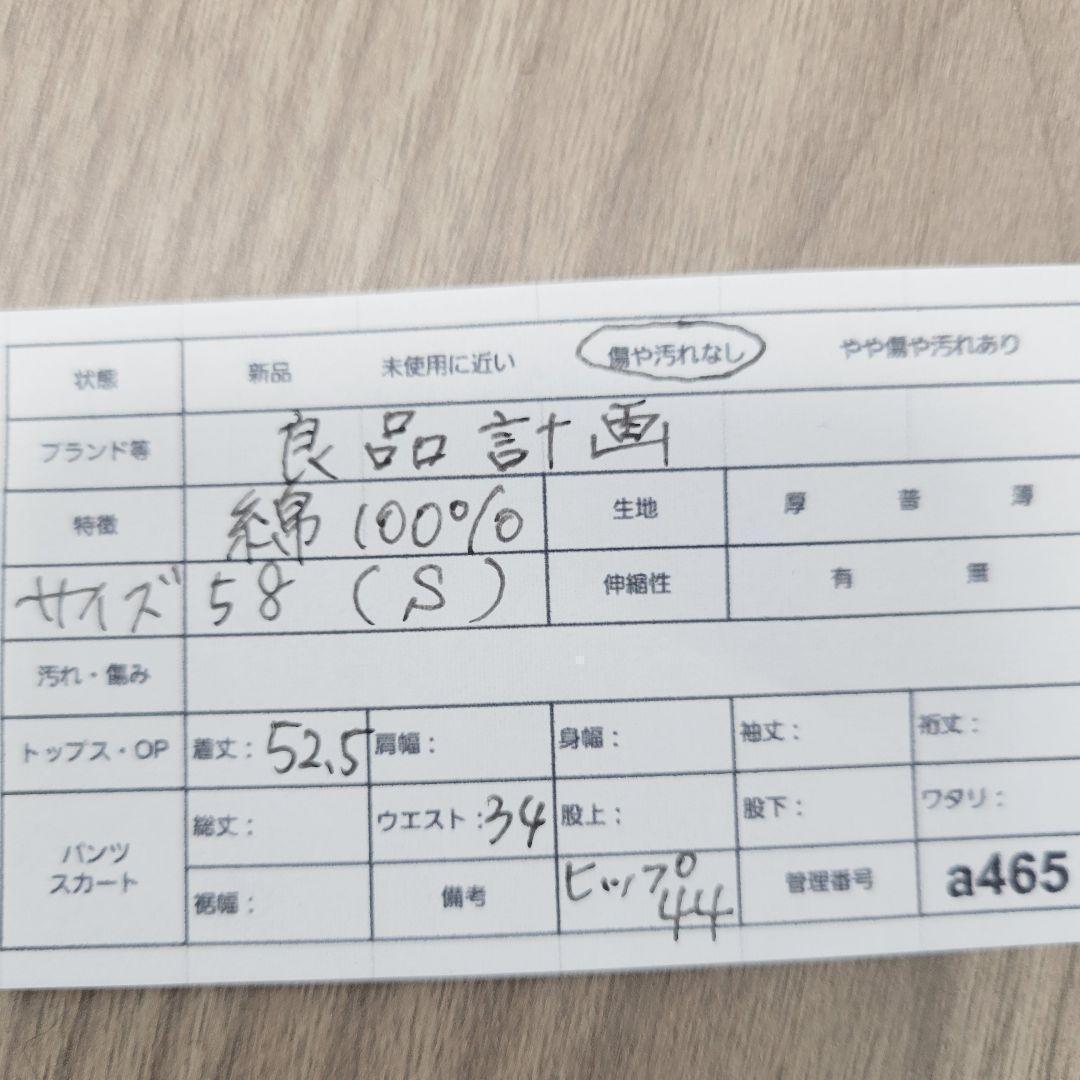 状態 新品 未使用に近い 傷や汚れなし やや傷や汚れあり
ブランド等 良品計画
特徴 綿100% 生地 厚 普 薄
サイズ 58 (S) 伸縮性 有 無
汚れ・傷み
トップス・OP 着丈: 52.5 肩幅: 身幅: 袖丈: 裄丈:
パンツ スカート 総丈: ウエスト: 34 股上: 股下: ワタリ:
裾幅: 備考 ヒップ 44 管理番号 a465